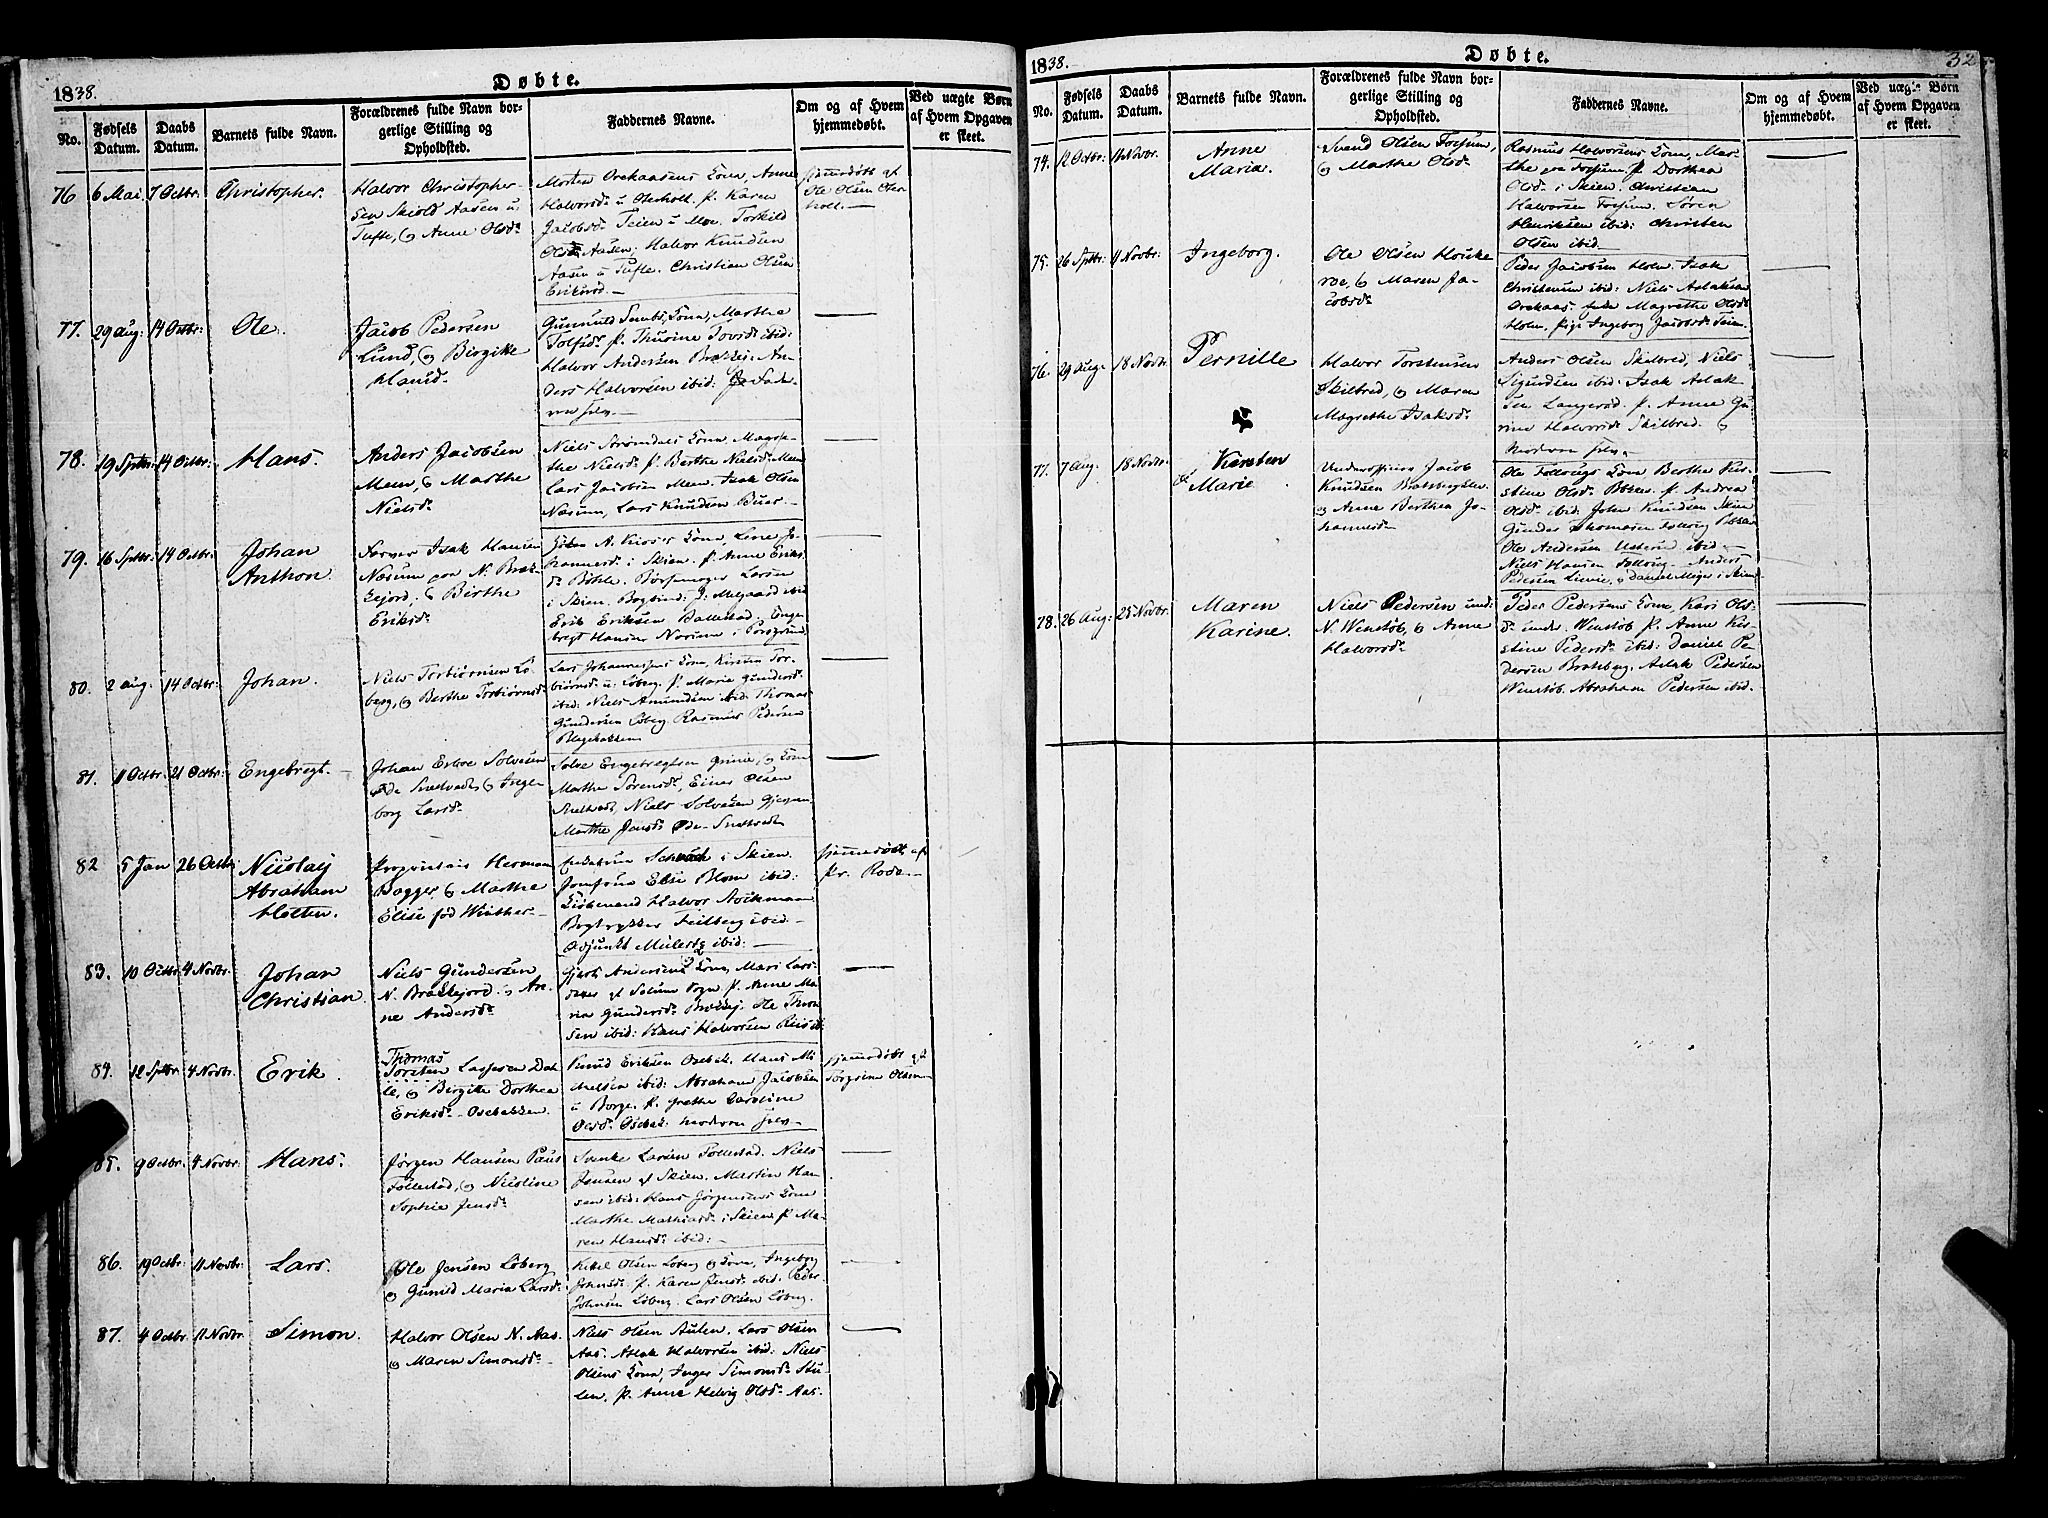 1838.
Døbte.
No.
Fødsels Datum.
Daabs Datum.
Barnets fulde Navn.
Forældrenes fulde Navn borgerlige Stilling og Opholdsted.
Faddernes Navne.
Om og af Hvem hjemmedøbt.
Ved uægte Børn af Hvem Opgaven er skeet.
76 6 Mai 7 Octbr: Christopher.
Halvor Christopher-
sen Skiold Aasen u:
Tufte, og Anne Olsd:
Halvorsd: u Oterholt. p. Karen
Jacobsd: Teien u Moe, Torkild
Aasen. Halvor Knudsen
Aasen u Tufte. Christian Olsen
Eriksrød.
hjemmedøbt af
Ole Olsen Oter
holt.
77. 29 Aug: 14 Octbr: Ole.
Jacob Pedersen
Lund, og Birgitte
Hansd:
Halvor Andersen
ders Halvorsen ibid:
78. 19 Sptbr: 14 Octbr: Hans.
Anders Jacobsen
Meen, og Marthe
Nielsd:
the Nielsd: p. Berthe Nielsd: Meen
Lars Jacobsen Meen. Isak Olsen
Næsum, Lars Knudsen Buer
79. 16 Sptbr: 14 Octbr: Johan
Anthon.
Farver Isak Hansen
Næsum paa N. Bræk-
kejord, og Birthe
Eriksd:
hannesd: i Skien. p. Anne Eriks
d: Bøhle. Børsemager Larsen
i Skien.
Erik Eriksen Ballestad, Enge-
bregt Hansen Næsum i Porsgrund
80. 2 Aug: 14 Octbr: Johan.
Niels Torbiørnsen Lø-
berg, og Berthe Torbiørnsd:
Lars Johannessens Kone, Kirsten Tor-
biørnsd: u: Løberg. p. Marie Gundersd:
ibid: Niels Amundsen ibid: Thomas
Gundersen Løberg. Rasmus Pedersen
81. 11 Octbr: 21 Octbr: Engebregt.
Johan Solvesen
Snelvedt, og Inge-
borg Larsd:
Solve Engebregtsen og Kone
Marthe Sørensd:, Einer Olsen
Snelvedt, Niels Solvesen
Marthe Jensd:
82 5 Jan 26 Octbr: Nicolay
Abraham
Holten.
Proprietair Herman
Bagger, og Marthe
Elise fød Winther
i Skien.
Jomfrue Else Blom ibid:
Kiøbmand Halvor
Bogtrykker Feilberg ibid:
Adjunkt ibid:
hjemmedøbt af
Pr. Rode
83. 10 Octbr: 4 Novbr: Johan
Christian
Niels Gundersen
N. Brækkejord. og An-
ne Andersd:
Andersens Kone, Mari Lars-
datter af Solum Sogn p. Anne Ma-
ria Gundersd: Brækkej. Ole
sen ibid: Hans Halvorsen
84. 12 Sptbr: 4 Novbr: Erik
Thomas
Torsten Larsen Dah-
le, og Birgitte Dorthea
Eriksd: Osebakken.
Knud Eriksen Osebak. Hans Mi
chelsen ibid: Abraham Jacobsen
u Borge. p. Grethe Caroline
Olsd: Osebak. moderen selv
hjemmedøbt af
Olsen
85. 9 Octbr: 4 Novbr: Hans.
Jørgen Hansen Paus
Follestad, og Nicoline
Sophie Jensd:
Svenke Larsen Follestad. Niels
Jensen af Skien. Martin Han
sen ibid: Hans Jørgensens Kone
Marthe Mathiasd: i Skien p. Ma-
ren Hansd: ibid:
86. 19 Octbr: 11 Novbr: Lars.
Ole Jensen Løberg
og Gunild Maria Larsd:
Kittel Olsen Løberg og Kone, Ingeborg
Johnsd: p. Karen Jensd: ibid: Peder
Johnsen Løberg. Lars Olsen Løberg.
87. 4 Octbr: 11 Novbr: Simon.
Halvor Olsen N. Aas.
og Maren Simonsd:
Niels Olsen Aulen. Lars Olsen
Aas. Aslak Halvorsen ibid: Niels
Olsens Kone, Inger Simonsd: Stu-
len, p. Anne Helvig Olsd: Aas.
1838.
Døbte.
32
No.
Fødsels Datum.
Daabs Datum.
Barnets fulde Navn.
Forældrenes fulde Navn borgerlige Stilling og Opholdsted.
Faddernes Navne.
Om og af Hvem hjemmedøbt.
Ved uægte Børn af Hvem Opgaven er skeet.
74. 12 Octbr: 11 Novbr: Anne
Maria.
Svend Olsen Fossum,
og Marthe Olsd:
Rasmus Halvorsens Kone, Mar-
the paa Fossum. p. Dorthea
Olsd: i Skien. Christian
Halvorsen Fossum. Søren
Henriksen ibid: Christen
Olsen ibid:
75. 26 Sptbr: 11 Novbr: Ingeborg.
Ole Olsen
og Maren Ja-
cobsd:
Peder Jacobsen Holm. Isak
Christensen ibid: Niels Aslaksen
Magrethe Olsd:
Holm. Pige Ingeborg Jacobsd: Teien.
76. 29 Aug: 18 Novbr: Pernille
Halvor Torstensen
Skilbred, og Maren
Magrethe Isaksd:
Anders Olsen Skilbred, Niels
Sigurdsen ibid: Isak Aslak
sen Langerød. p. Anne Gu-
rine Halvorsd: Skilbred. og
moderen selv.
77. 7 Aug: 18 Novbr: Karsten
Marie
Underofficer Jacob
Knudsen Bratsbergklev.
og Anne Berthea Jo-
hannesd:
Kone Berthe Kir-
stine Olsd: p. Andrea
Olsd: ibid: John Knudsen Skien
Ole Andersen ibid:
Niels Hansen Anders
Pedersen i Skien
78. 26 Aug: 25 Novbr: Maren
Karine.
Niels Pedersen und:
N. Wenstøb, og Anne
Halvorsd:
Peder Pedersens Kone, Kari Ols-
d: under Wenstøb p. Anne Kir-
stine Pedersd: ibid: Daniel Pe-
dersen Bratsberg. Aslak Pedersen
Wenstøb. Abraham Pedersen ibid.